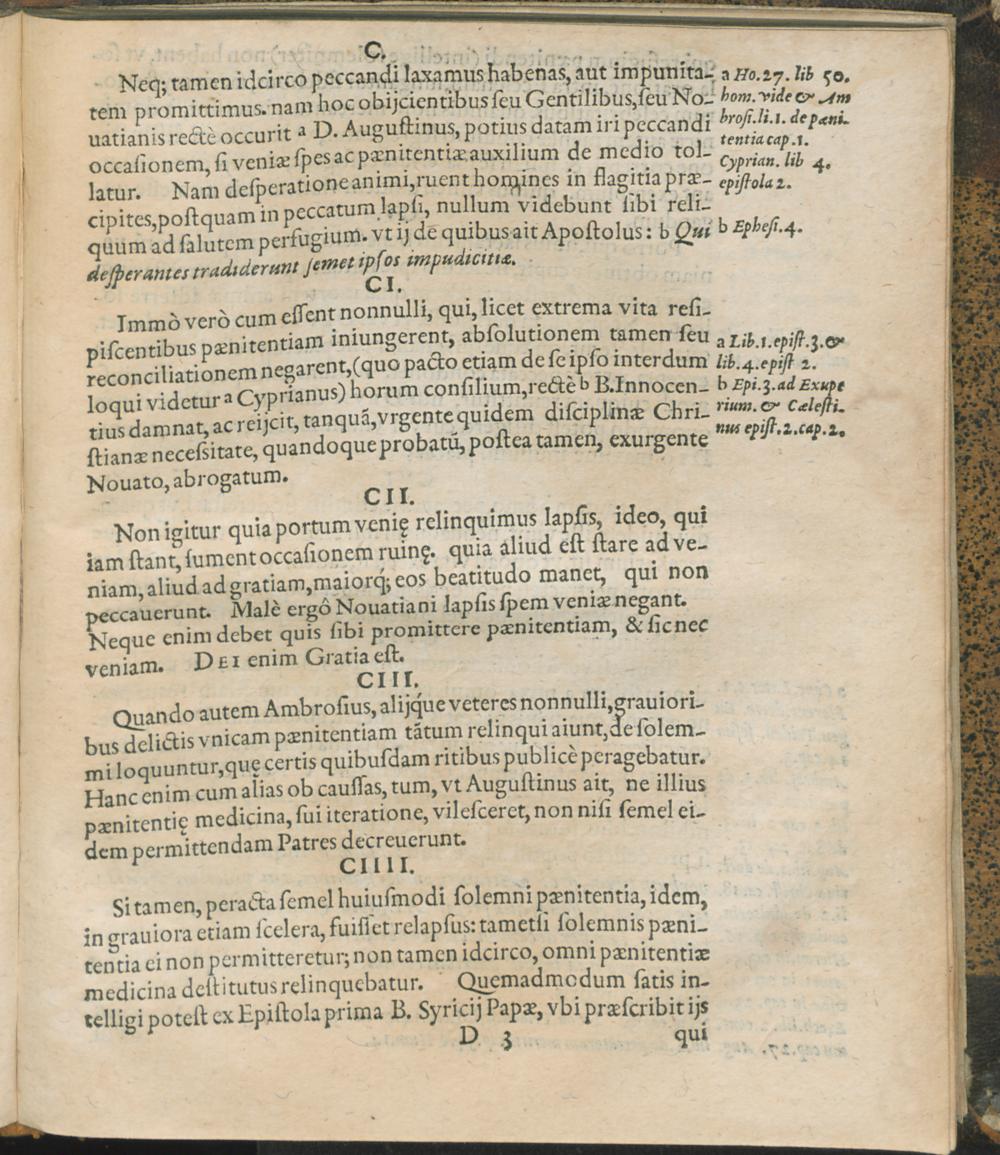 C.
Neq; tamen idcirco peccandi laxamus habenas, aut impunita-
tem promittimus. nam hoc obijcientibus ſeu Gentilibus, ſeu No-
uatianis rectè occurit a D. Auguſtinus, potius datam iri peccandi
occaſionem, ſi veniæ ſpes ac pænitentiæ auxilium de medio tol-
latur. Nam deſperatione animi, ruent homines in flagitia præ-
cipites, poſtquam in peccatum lapſi, nullum videbunt ſibi reli-
quum ad ſalutem perfugium. vt ij de quibus ait Apoſtolus: b Qui
deſperantes tradiderunt ſemet ipſos impudicitiæ.
a Ho. 27. lib 50.
hom. vide & Am
broſi. li. 1. de pæni-
tentia cap. 1.
Cyprian. lib 4.
epiſtola 2.
b Epheſi. 4.
CI.
Immò verò cum eſſent nonnulli, qui, licet extrema vita reſi-
piſcentibus pænitentiam iniungerent, abſolutionem tamen ſeu
reconciliationem negarent, (quo pacto etiam de ſe ipſo interdum
loqui videtur a Cyprianus) horum conſilium, rectè b B. Innocen-
tius damnat, ac reijcit, tanquã, vrgente quidem diſciplinæ Chri-
ſtianæ neceſsitate, quandoque probatũ, poſtea tamen, exurgente
Nouato, abrogatum.
a Lib. 1. epiſt. 3. &
lib. 4. epiſt 2.
b Epi. 3. ad Exupe
rium. & Cæleſti-
nus epiſt. 2. cap. 2.
CII.
Non igitur quia portum venię relinquimus lapſis, ideo, qui
iam ſtant, ſument occaſionem ruinę. quia aliud eſt ſtare ad ve-
niam, aliud ad gratiam, maiorq́; eos beatitudo manet, qui non
peccauerunt. Malè ergô Nouatiani lapſis ſpem veniæ negant.
Neque enim debet quis ſibi promittere pænitentiam, & ſic nec
veniam. DEI enim Gratia eſt.
CIII.
Quando autem Ambroſius, alijq́ue veteres nonnulli, grauiori-
bus delictis vnicam pænitentiam tãtum relinqui aiunt, de ſolem-
mi loquuntur, quę certis quibuſdam ritibus publicè peragebatur.
Hanc enim cum alias ob cauſſas, tum, vt Auguſtinus ait, ne illius
pænitentię medicina, ſui iteratione, vileſceret, non niſi ſemel ei-
dem permittendam Patres decreuerunt.
CIIII.
Si tamen, peracta ſemel huiuſmodi ſolemni pænitentia, idem,
in grauiora etiam ſcelera, fuiſſet relapſus: tametſi ſolemnis pæni-
tentia ei non permitteretur; non tamen idcirco, omni pænitentiæ
medicina deſtitutus relinquebatur. Quemadmodum ſatis in-
telligi poteſt ex Epiſtola prima B. Syricij Papæ, vbi præſcribit ijs
D 3 qui